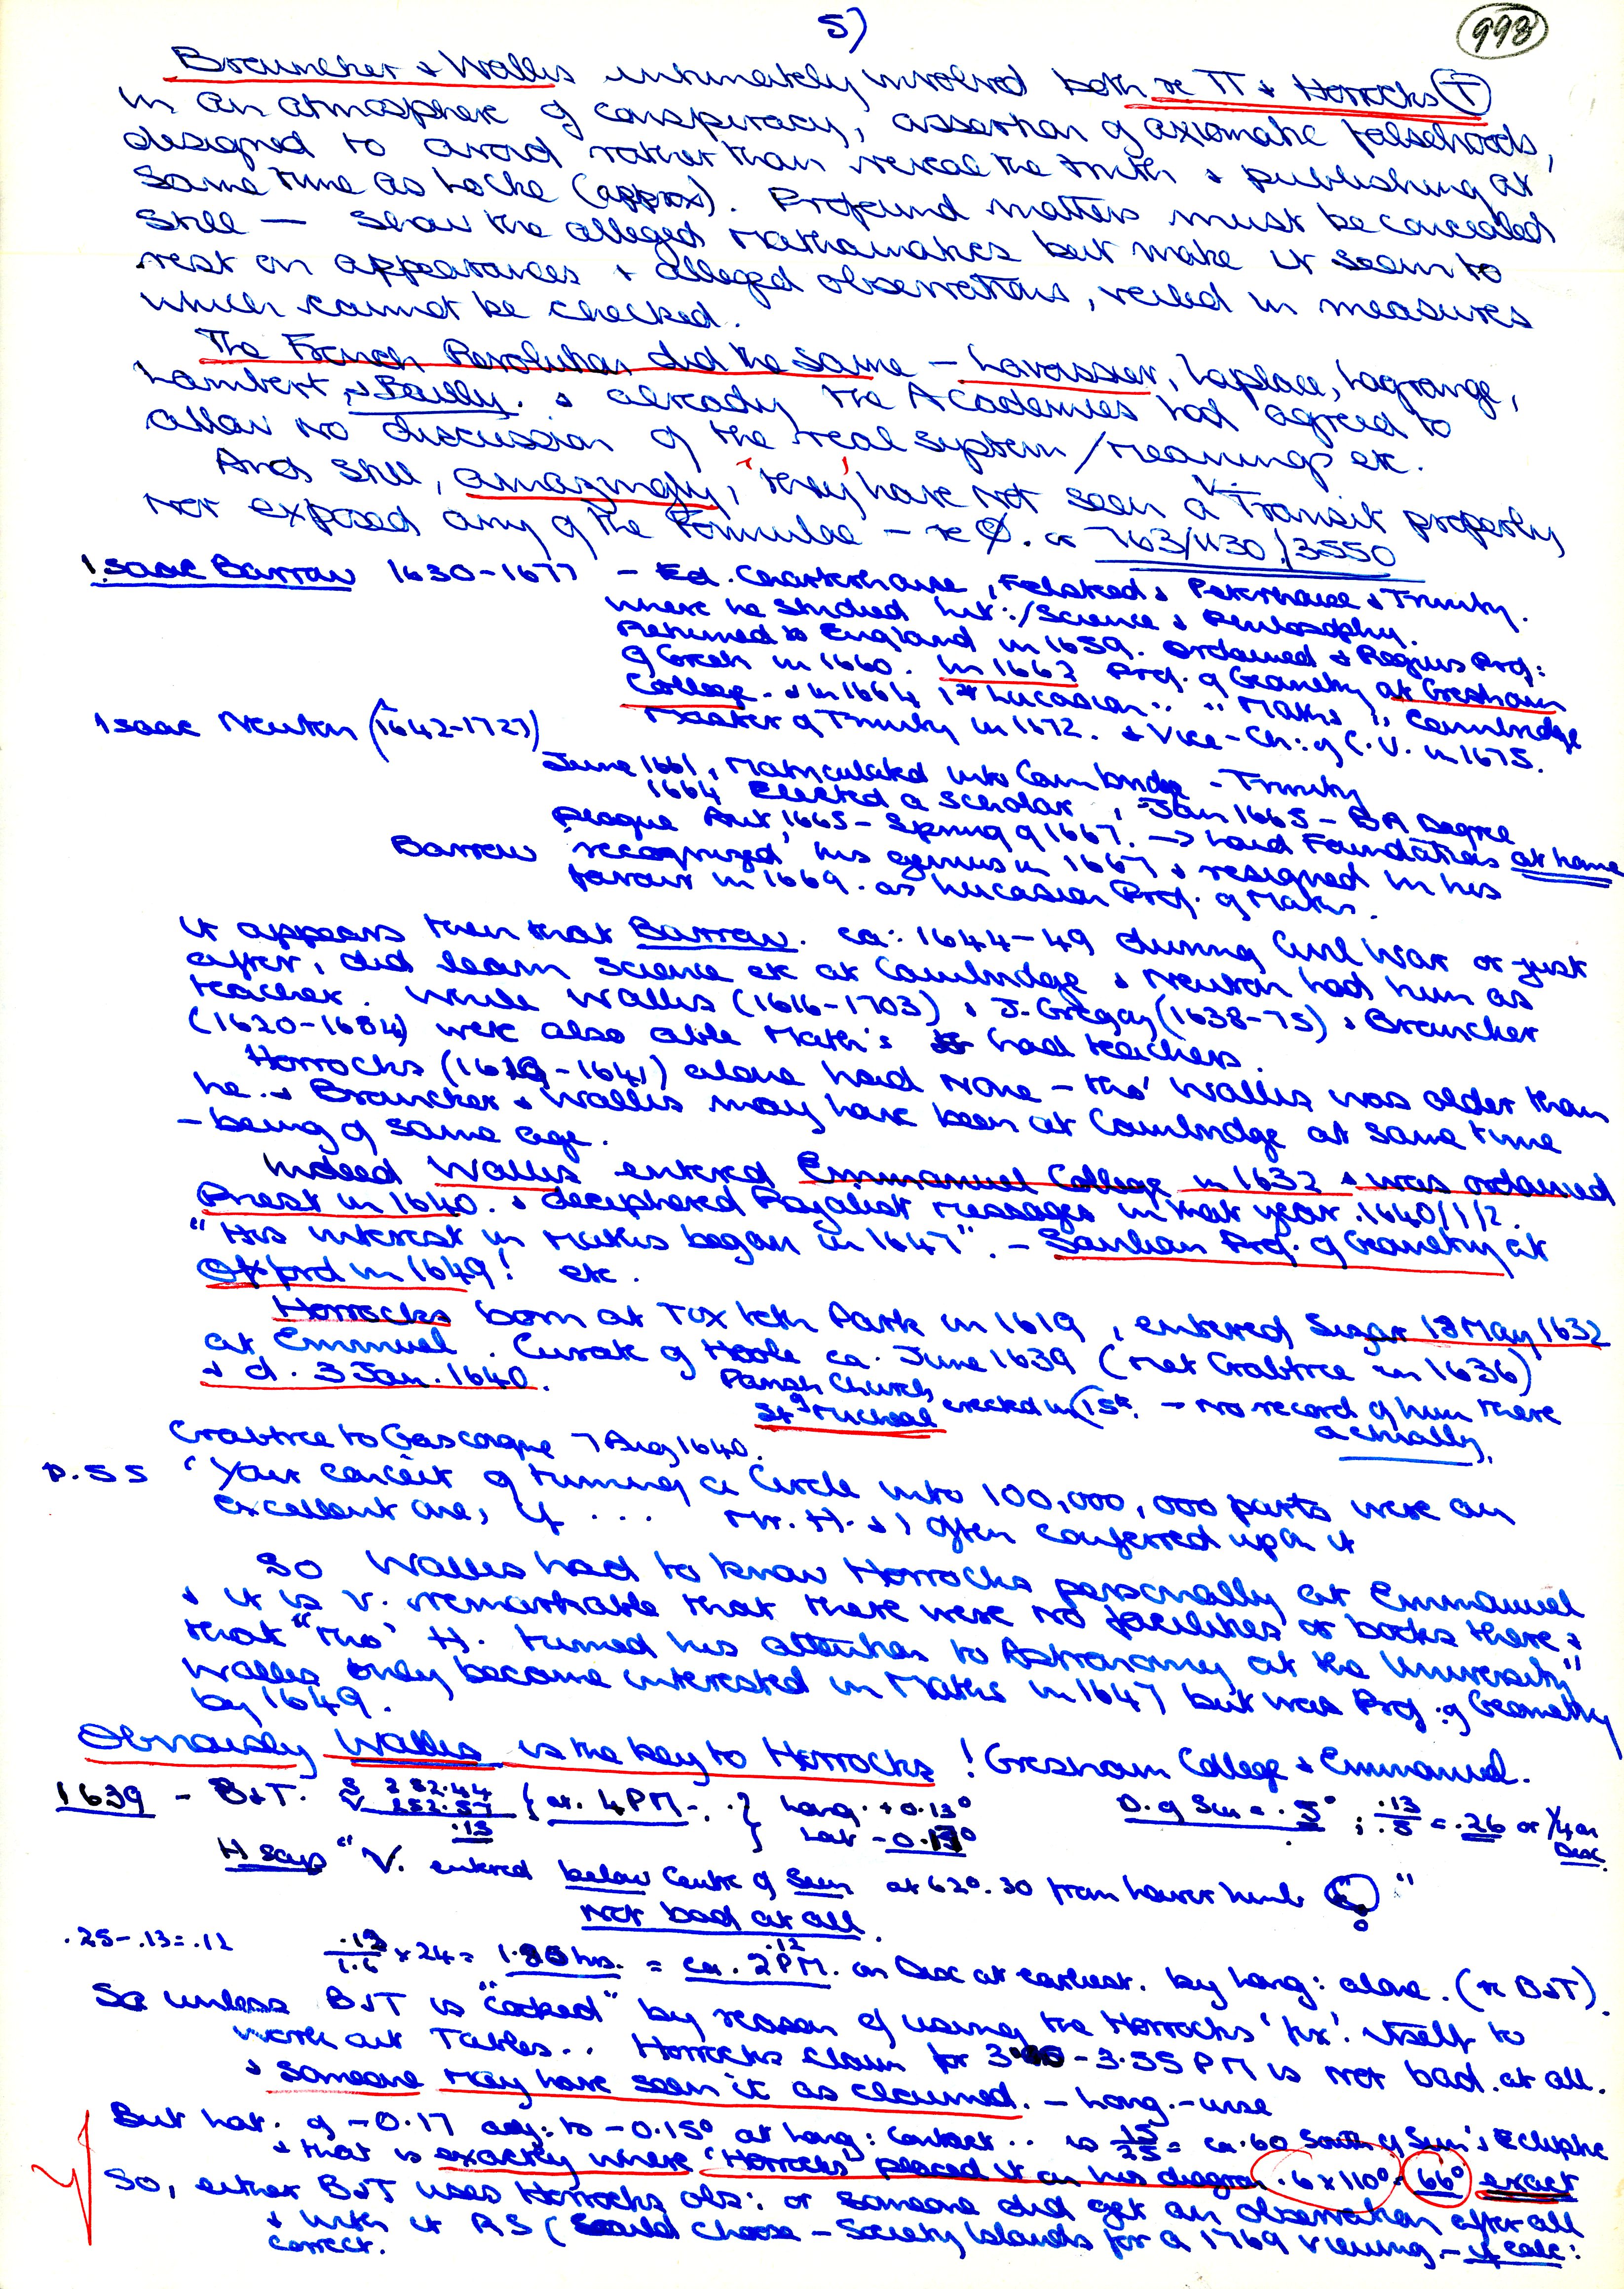 5)
998
Brouncker & Wallis intimately involved both re π & Horrocks (T)
in an atmosphere of conspiracy, assertion of axiomatic falsehoods,
designed to avoid rather than reveal the truth & publishing at
same time as Locke (approx). Profound matters must be concealed
still — show the alleged Mathematics but make it seem to
rest on appearances & alleged observations, veiled in measures
which cannot be checked.
The French Revolution did the same – Lavoisier, Laplace, Lagrange,
Lambert, & Bailly. & already the Academies had agreed to
allow no discussion of the real system/meanings etc.
And still, amazingly, 'they' have not seen a V. Transit properly
nor exposed any of the Formulae – re Ø. or 763/1130/3550
Isaac Barrow 1630-1677 – Ed. Charterhouse, Felsted & Peterhouse & Trinity.
where he studied Lit:/Science & Philosophy.
Returned to England in 1659. Ordained & Regius Prof:
of Greek in 1660. In 1662 Prof. of Geometry at Gresham
College. & in 1664 1st Lucasian " " Maths " Cambridge
Master of Trinity in 1672. & Vice-Ch: of C.U. in 1675.
Isaac Newton (1642-1727)
June 1661, Matriculated into Cambridge - Trinity
1664 Elected a scholar, Jan 1665 - BA Degree
Plague Aut, 1665 - Spring of 1667. → laid Foundations at home
Barrow 'recognized' his genius in 1667 & resigned in his
favour in 1669. as Lucasian Prof. of Maths.
It appears then that Barrow. ca: 1644-49 during Civil War or just
after, did learn science etc at Cambridge & Newton had him as
teacher. While Wallis (1616-1703), J. Gregory (1638-75), Brouncker
(1620-1684) were also able Math's had teachers.
Horrocks (1619-1641) alone had none – tho' Wallis was older than
he. & Brouncker & Wallis may have been at Cambridge at same time
– being of same age.
Indeed Wallis entered Emmanuel College in 1632 & was ordained
Priest in 1640. & deciphered Royalist messages in that year. 1640/1/2.
"His interest in Maths began in 1647". – Savilian Prof. of Geometry at
Oxford in 1649! etc.
Horrocks born at Toxteth Park in 1619, entered Sizar 18 May 1632
at Emmuel. Curate of Hoole ca. June 1639 (met Crabtree in 1636)
& d. 3 Jan. 1640.
Parish Church erected in 15c. – no record of him there
of St Micheal
actually.
Crabtree to Gascoigne 7 Aug 1640.
p.55 'Your conceit of turning a Circle into 100,000,000 parts were an
excellent one, if ... Mr. H. & I often conferred upon it
So Wallis had to know Horrocks personally at Emmanuel
& it is v. remarkable that there were no facilities or books there &
that "tho' H. turned his attention to Astronomy at the University"
Wallis only became interested in Maths in 1647 but was Prof: of Geometry
by 1649.
Obviously Wallis is the key to Horrocks! Gresham College & Emmanuel.
1639 – B&T. S 252.44 } at. 4PM-. } Long. +0.13° D. of Sun = .5° ; .13/.5 = .26 or 1/4 on
V 252.57 Lat -0.17° Disc.
.13
H says "V. entered below Centre of Sun at 62°.30 from lower limb "
Not bad at all.
.25-.13=.12 .12/1.6 × 24 = 1.80 hrs. = ca. 2PM. on Disc at earliest. by Long: alone. (re B&T).
.12
So unless B&T is "cooked" by reason of using the Horrocks 'fix' itself to
work out Tables.. Horrocks claim for 3. -3.55 PM is not bad. at all.
& someone may have seen it as claimed. – Long.-wise
But Lat. of -0.17 adj: to -0.15° at Long: contact.. is 15/25 = ca.60 South of Sun's Ecliptic
& that is exactly where 'Horrocks' placed it on his diagram .6 x 110° = 66° exact
So, either B&T uses Horrocks obs: or someone did get an observation after all
& with it RS (could choose – Society Islands for a 1769 viewing. – if calc:
correct.